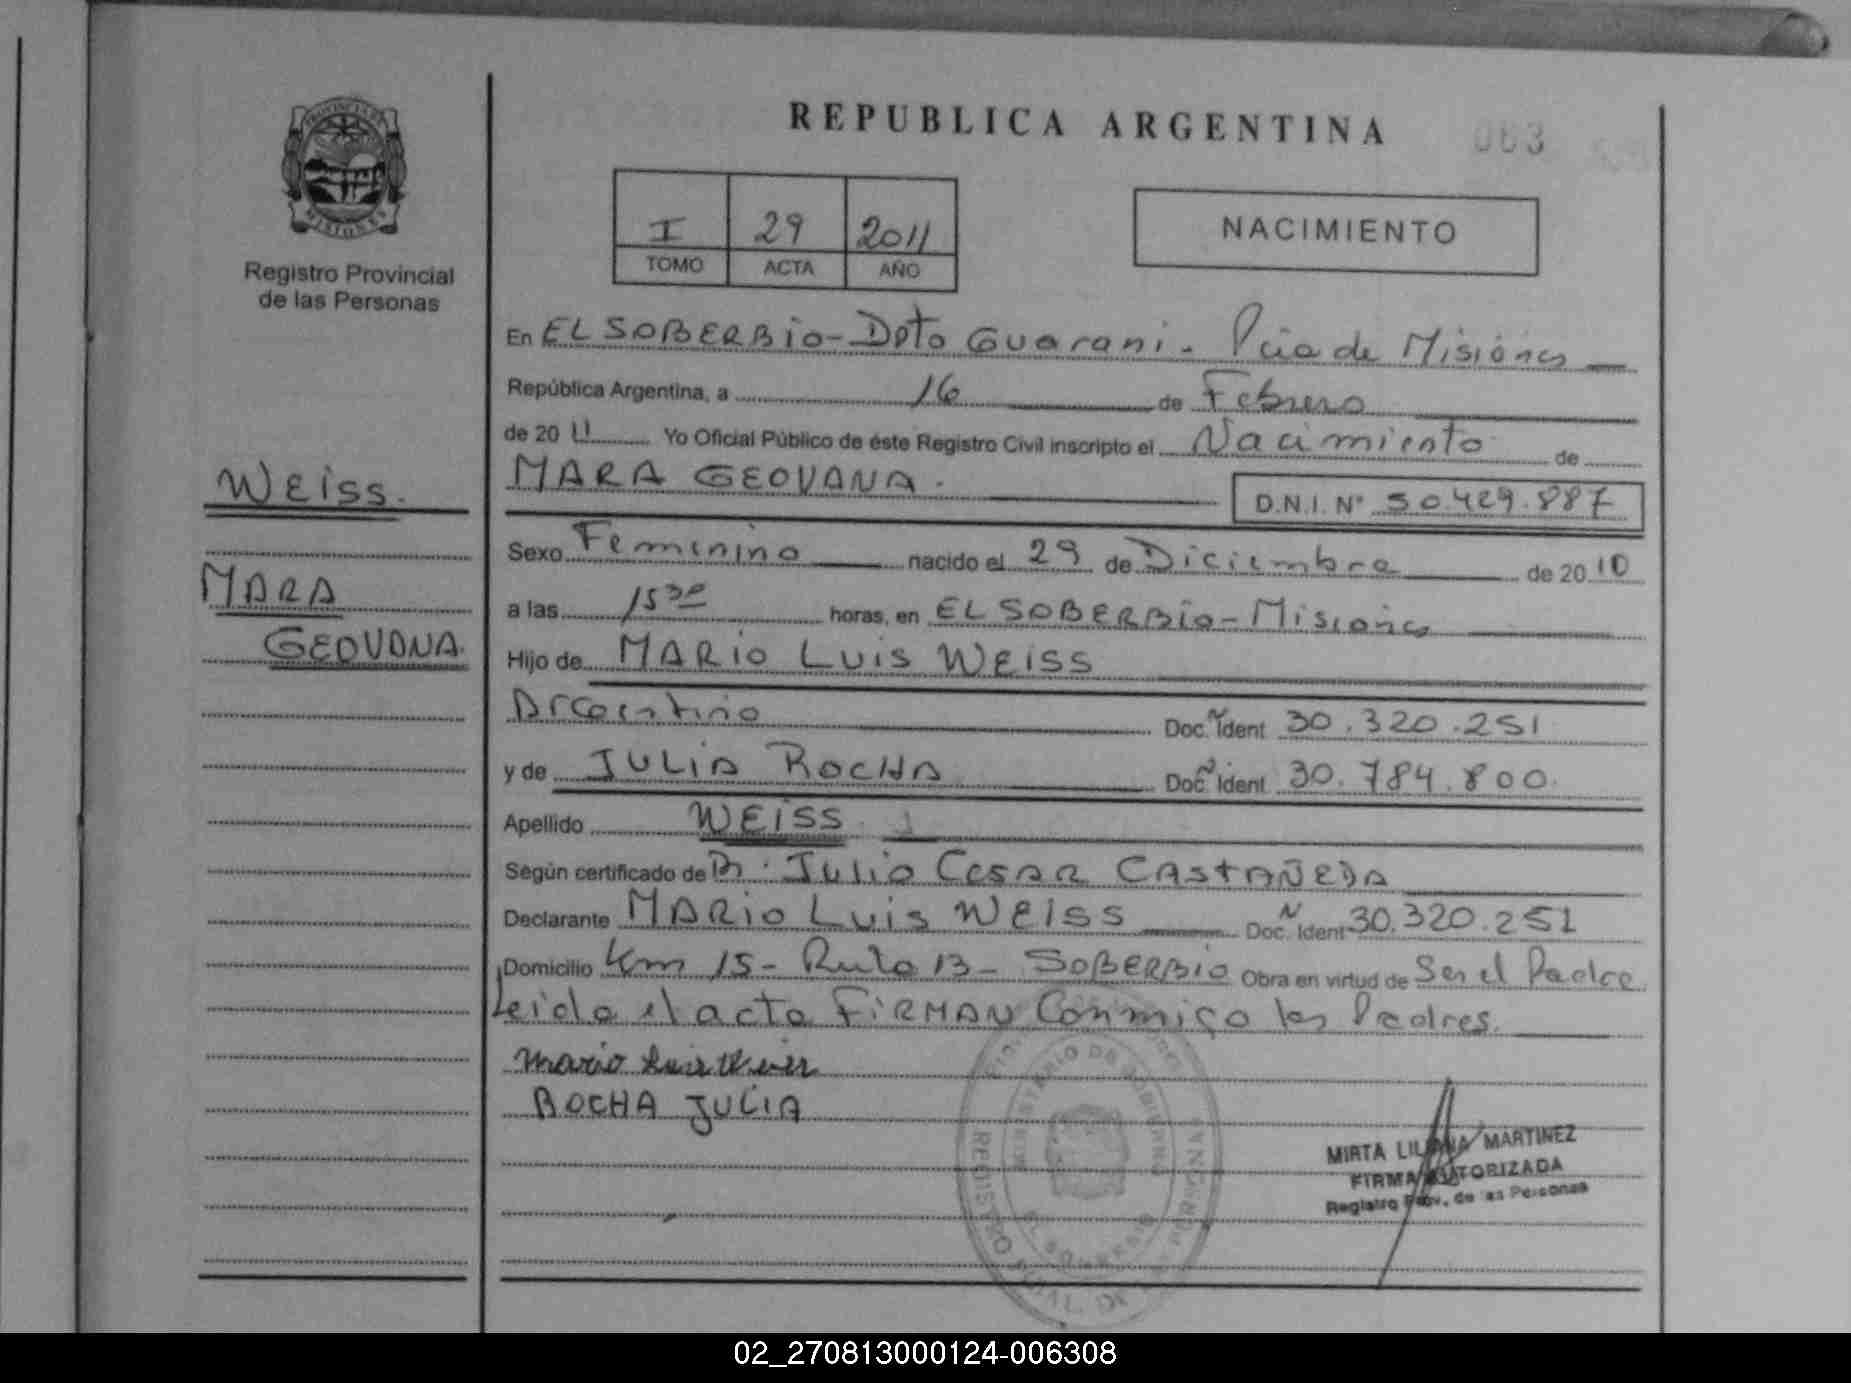 REPUBLICA ARGENTINA
063
PROVINCIA DE
MISIONES
Registro Provincial
de las Personas
I 29 2011
TOMO ACTA AÑO
NACIMIENTO
En EL SOBERBIO - Dpto Guarani - Pcia de Misiones
República Argentina, a 16 de Febrero
de 20 11 Yo Oficial Público de éste Registro Civil inscripto el Nacimiento de
MARA GEOVANA.
D.N.I. N° 50.429.887
Weiss.
MARA
GEOVANA.
Sexo Femenino nacido el 29 de Diciembre de 20 10
a las 15 30 horas, en EL SOBERBIO - Misiones
Hijo de MARIO LUIS WEISS
Argentino Doc. Ident 30.320.251
y de JULIA ROCHA Doc. Ident 30.784.800.
Apellido WEISS
Según certificado de Dr. Julio Cesar CASTAÑEDA
Declarante MARIO LUIS WEISS Doc. Ident 30.320.251
Domicilio Km 15 - Ruta 13 - SOBERBIO Obra en virtud de Ser el Padre
Leida el acta FIRMAN Conmigo los Padres.
Mario Luis Weiss
ROCHA JULIA
MINISTERIO DE GOBIERNO
REGISTRO DE LAS PERSONAS
EL SOBERBIO
MIRTA LILIANA MARTINEZ
FIRMA AUTORIZADA
Registro Prov. de las Personas
02_270813000124-006308